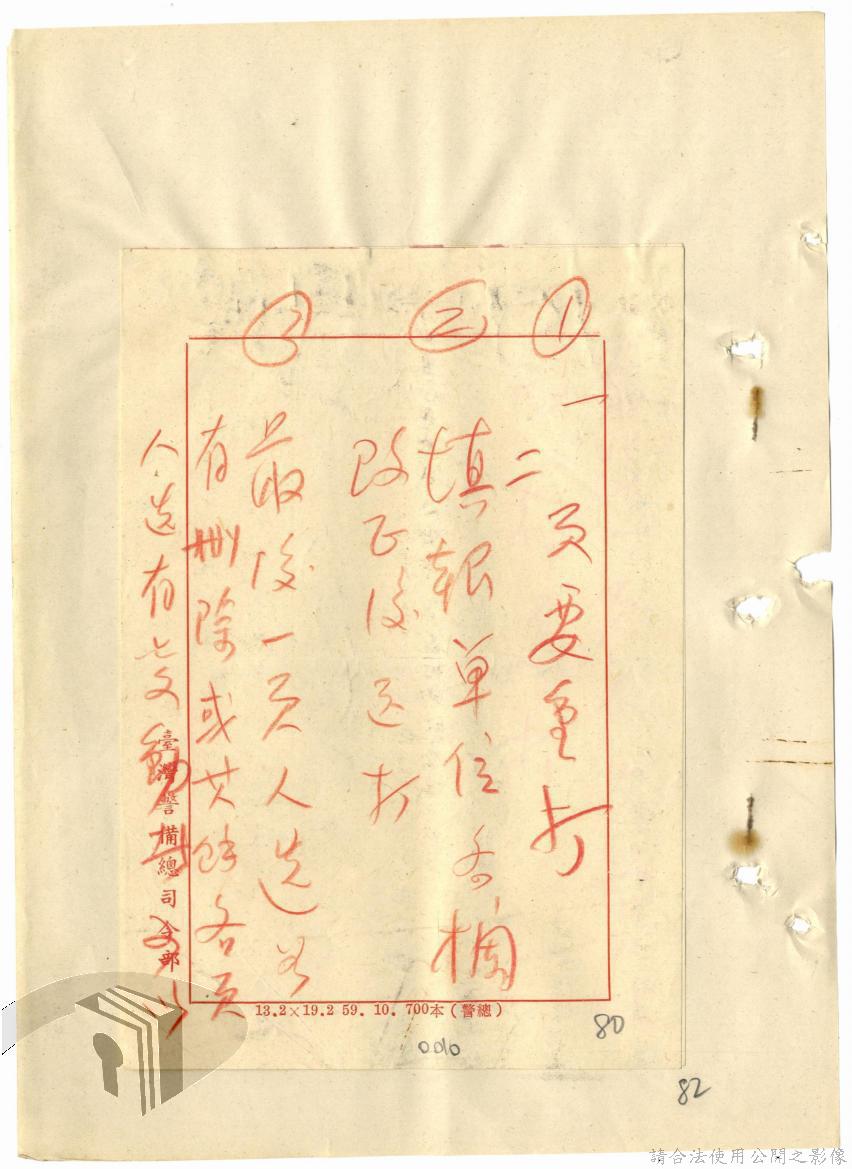 ①
一
二
頁要重打
㊁
填報單位各欄
改正後送打
㊂
最後一頁人選若
有刪除或其餘各頁
人選有變動
臺灣警備總司令部
13.2×19.2 59. 10. 700本(警總)
0010
80
82
請合法使用公開之影像